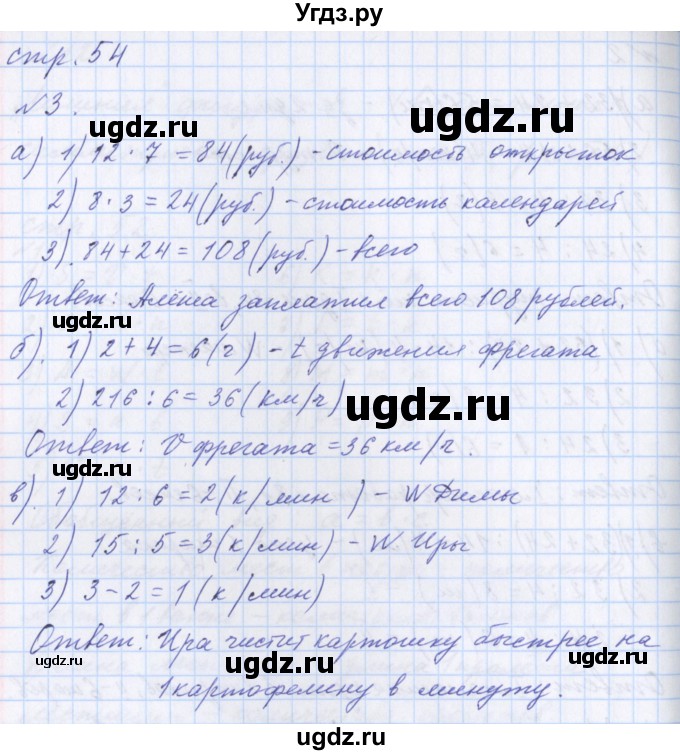 Угдз.ру
стр. 54
№3.
ugdz.ru
а) 1) 12 · 7 = 84 (руб.) - стоимость открыток
2) 8 · 3 = 24 (руб.) - стоимость календарей
3). 84 + 24 = 108 (руб.) - всего
ugdz.ru
Ответ: Алёша заплатил всего 108 рублей.
ugdz.ru
б). 1) 2 + 4 = 6 (ч) - t движения фрегата
2) 216 : 6 = 36 (км/ч)
ugdz.ru
Ответ: V фрегата = 36 км/ч.
ugdz.ru
в). 1) 12 : 6 = 2 (к/мин) - W Димы
2) 15 : 5 = 3 (к/мин) - W Иры
ugdz.ru
3) 3 - 2 = 1 (к/мин)
Ответ: Ира чистит картошку быстрее на
ugdz.ru
ugdz.ru
1 картофелину в минуту.
ugdz.ru